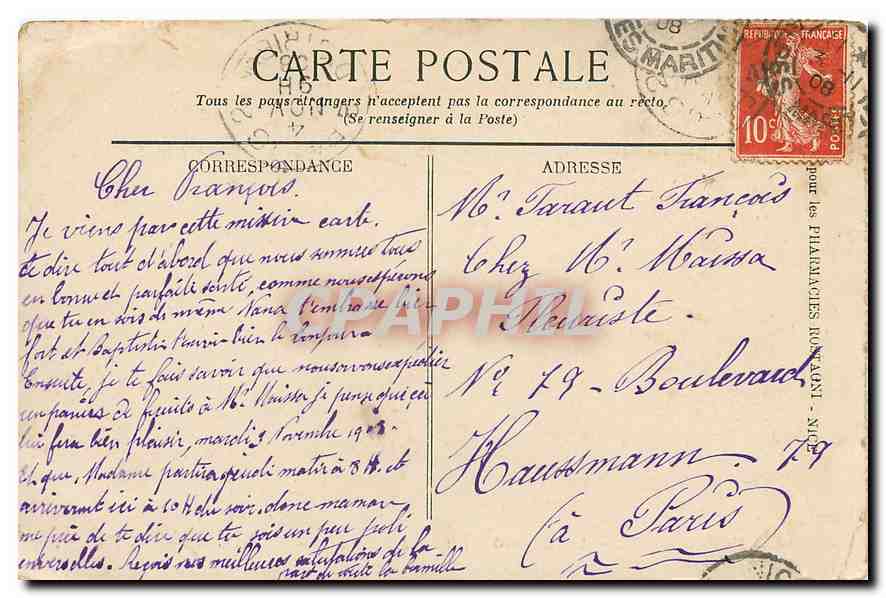 CARTE POSTALE
Tous les pays étrangers n'acceptent pas la correspondance au recto
(Se renseigner à la Poste)
CORRESPONDANCE
Cher François.
Je viens par cette missive carte.
te dire tout d'abord que nous sommes tous
en bonne et parfaite santé, comme nous esperons
que tu en sois de même Nana t'embrasse bien
fort et Baptistin t'envoi bien le bonjour.
Ensuite, je te fais savoir que nous avons expedier
un paniers de fruits à Mr Maissa je pense que ça
lui fera bien plaisir, mardi 3 Novembre 1908.
et que, Madame partira jeudi matin à 8 H. et
arriveront ici à 10 H du soir. donc maman
me prie de te dire que tu sois un peu poli
envers elles. Reçois nos meilleures salutations de la
part de toute la famille
ADRESSE
Mr. Taraut François
Chez Mr. Maissa
Fleuriste.
No, 79 - Boulevard
Haussmann. 79
(à Paris)
REPUBLIQUE FRANÇAISE
10c
POSTES
pour les PHARMACIES ROSTAGNI - NICE
MARITIMES
08
CPAPHIL